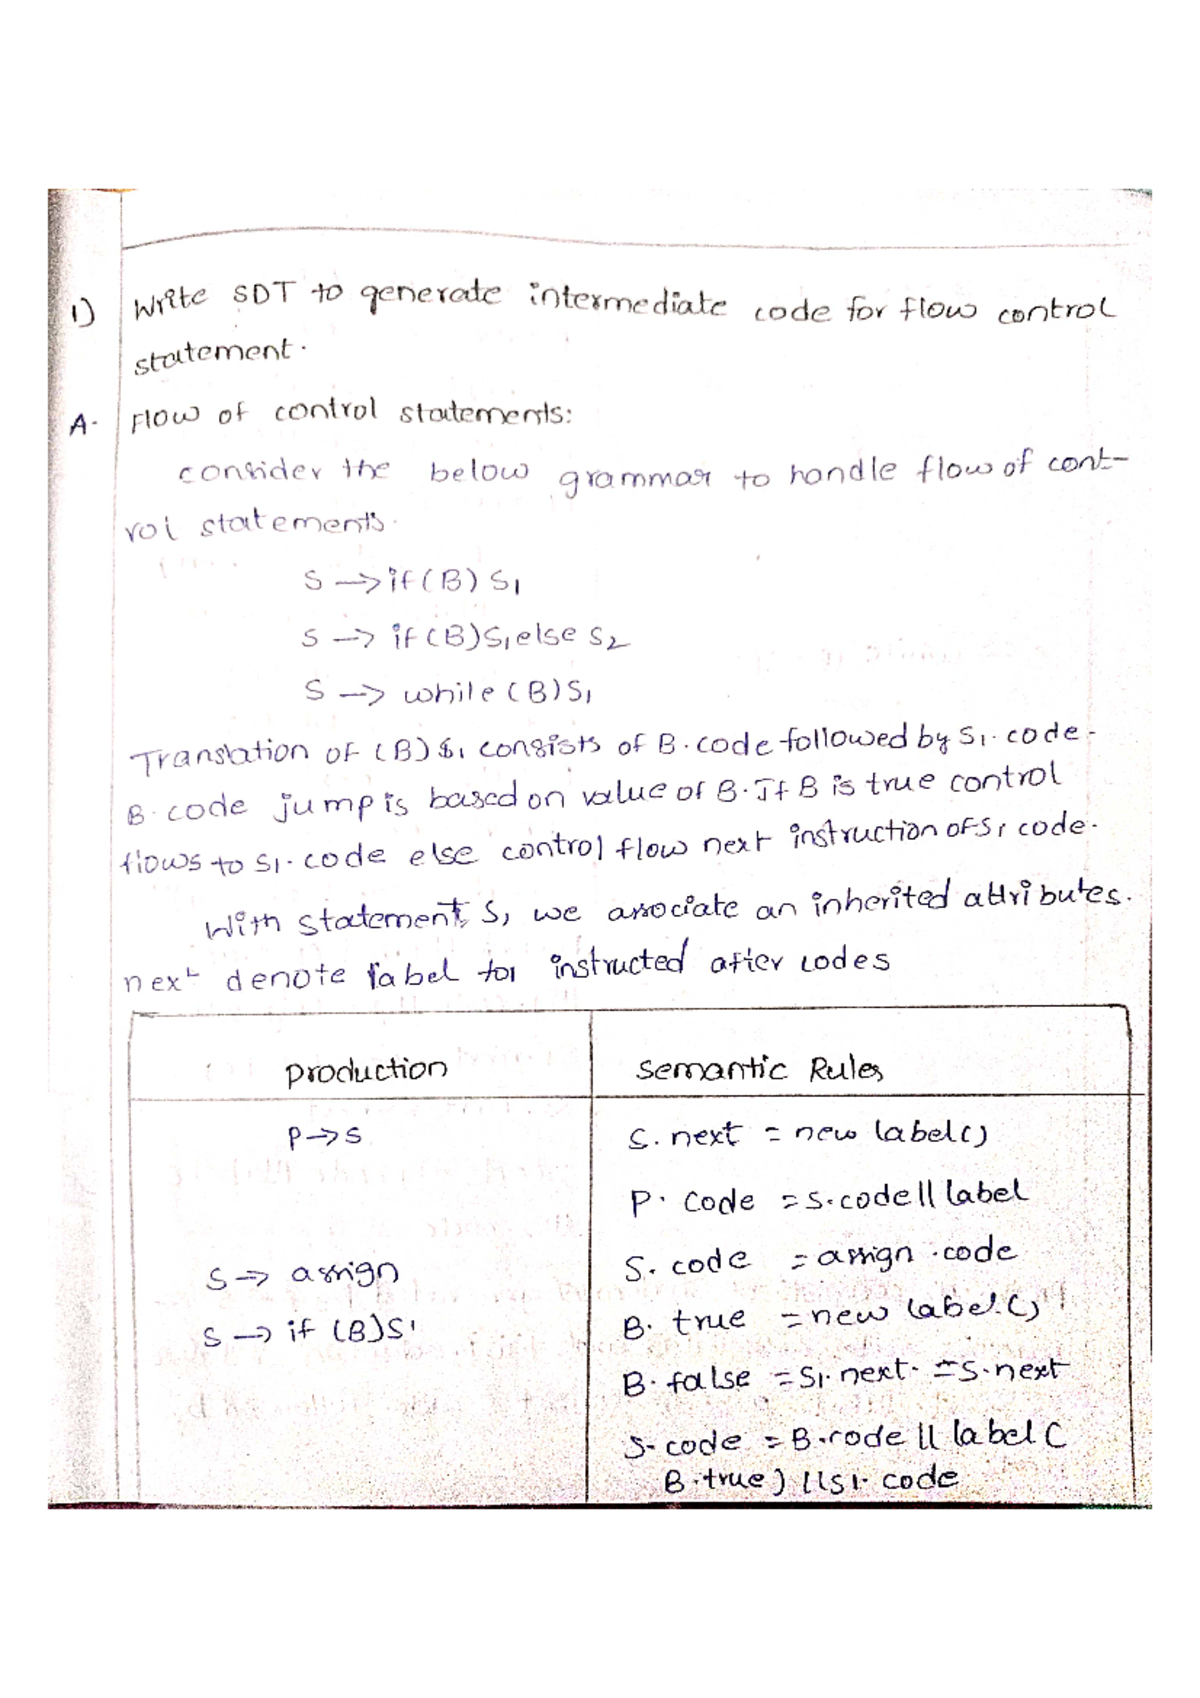 1) Write SDT to generate intermediate code for flow control
statement.
A. Flow of control statements:
consider the below grammar to handle flow of cont-
rol statements.
S → if (B) S1
S → if (B) S1 else S2
S → while (B) S1
Translation of (B) S1 consists of B.code followed by S1.code.
B.code jump is based on value of B. If B is true control
flows to S1.code else control flow next instruction of S1 code.
With statement S, we associate an inherited attributes.
next denote label for instructed after codes
production semantic Rules
P → S S.next = new label()
P. Code = S.code || label
S → assign S. code = assign .code
S → if (B) S1 B. true = new label()
B. false = S1.next. = S.next
S. code = B.code || label (
B.true) || S1. code